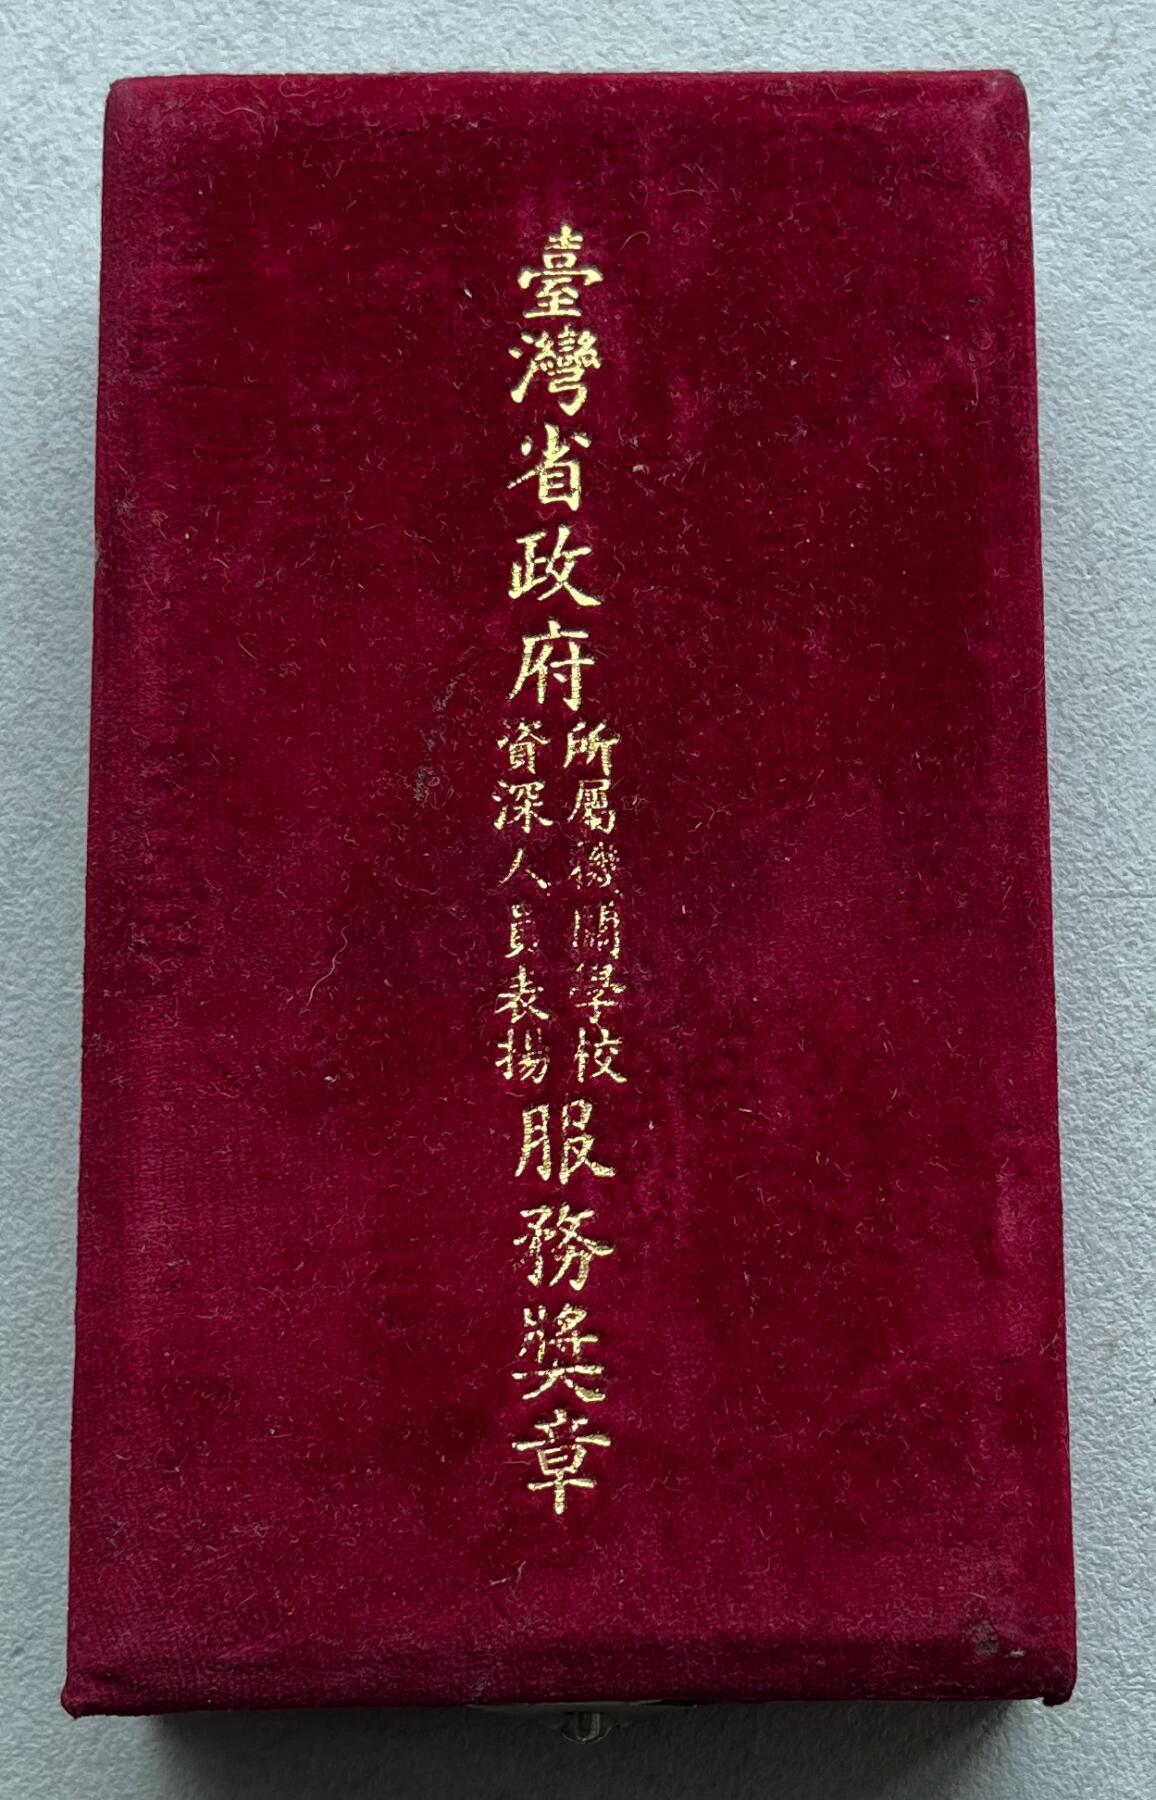 臺灣省政府
所屬機關學校
資深人員表揚
服務獎章